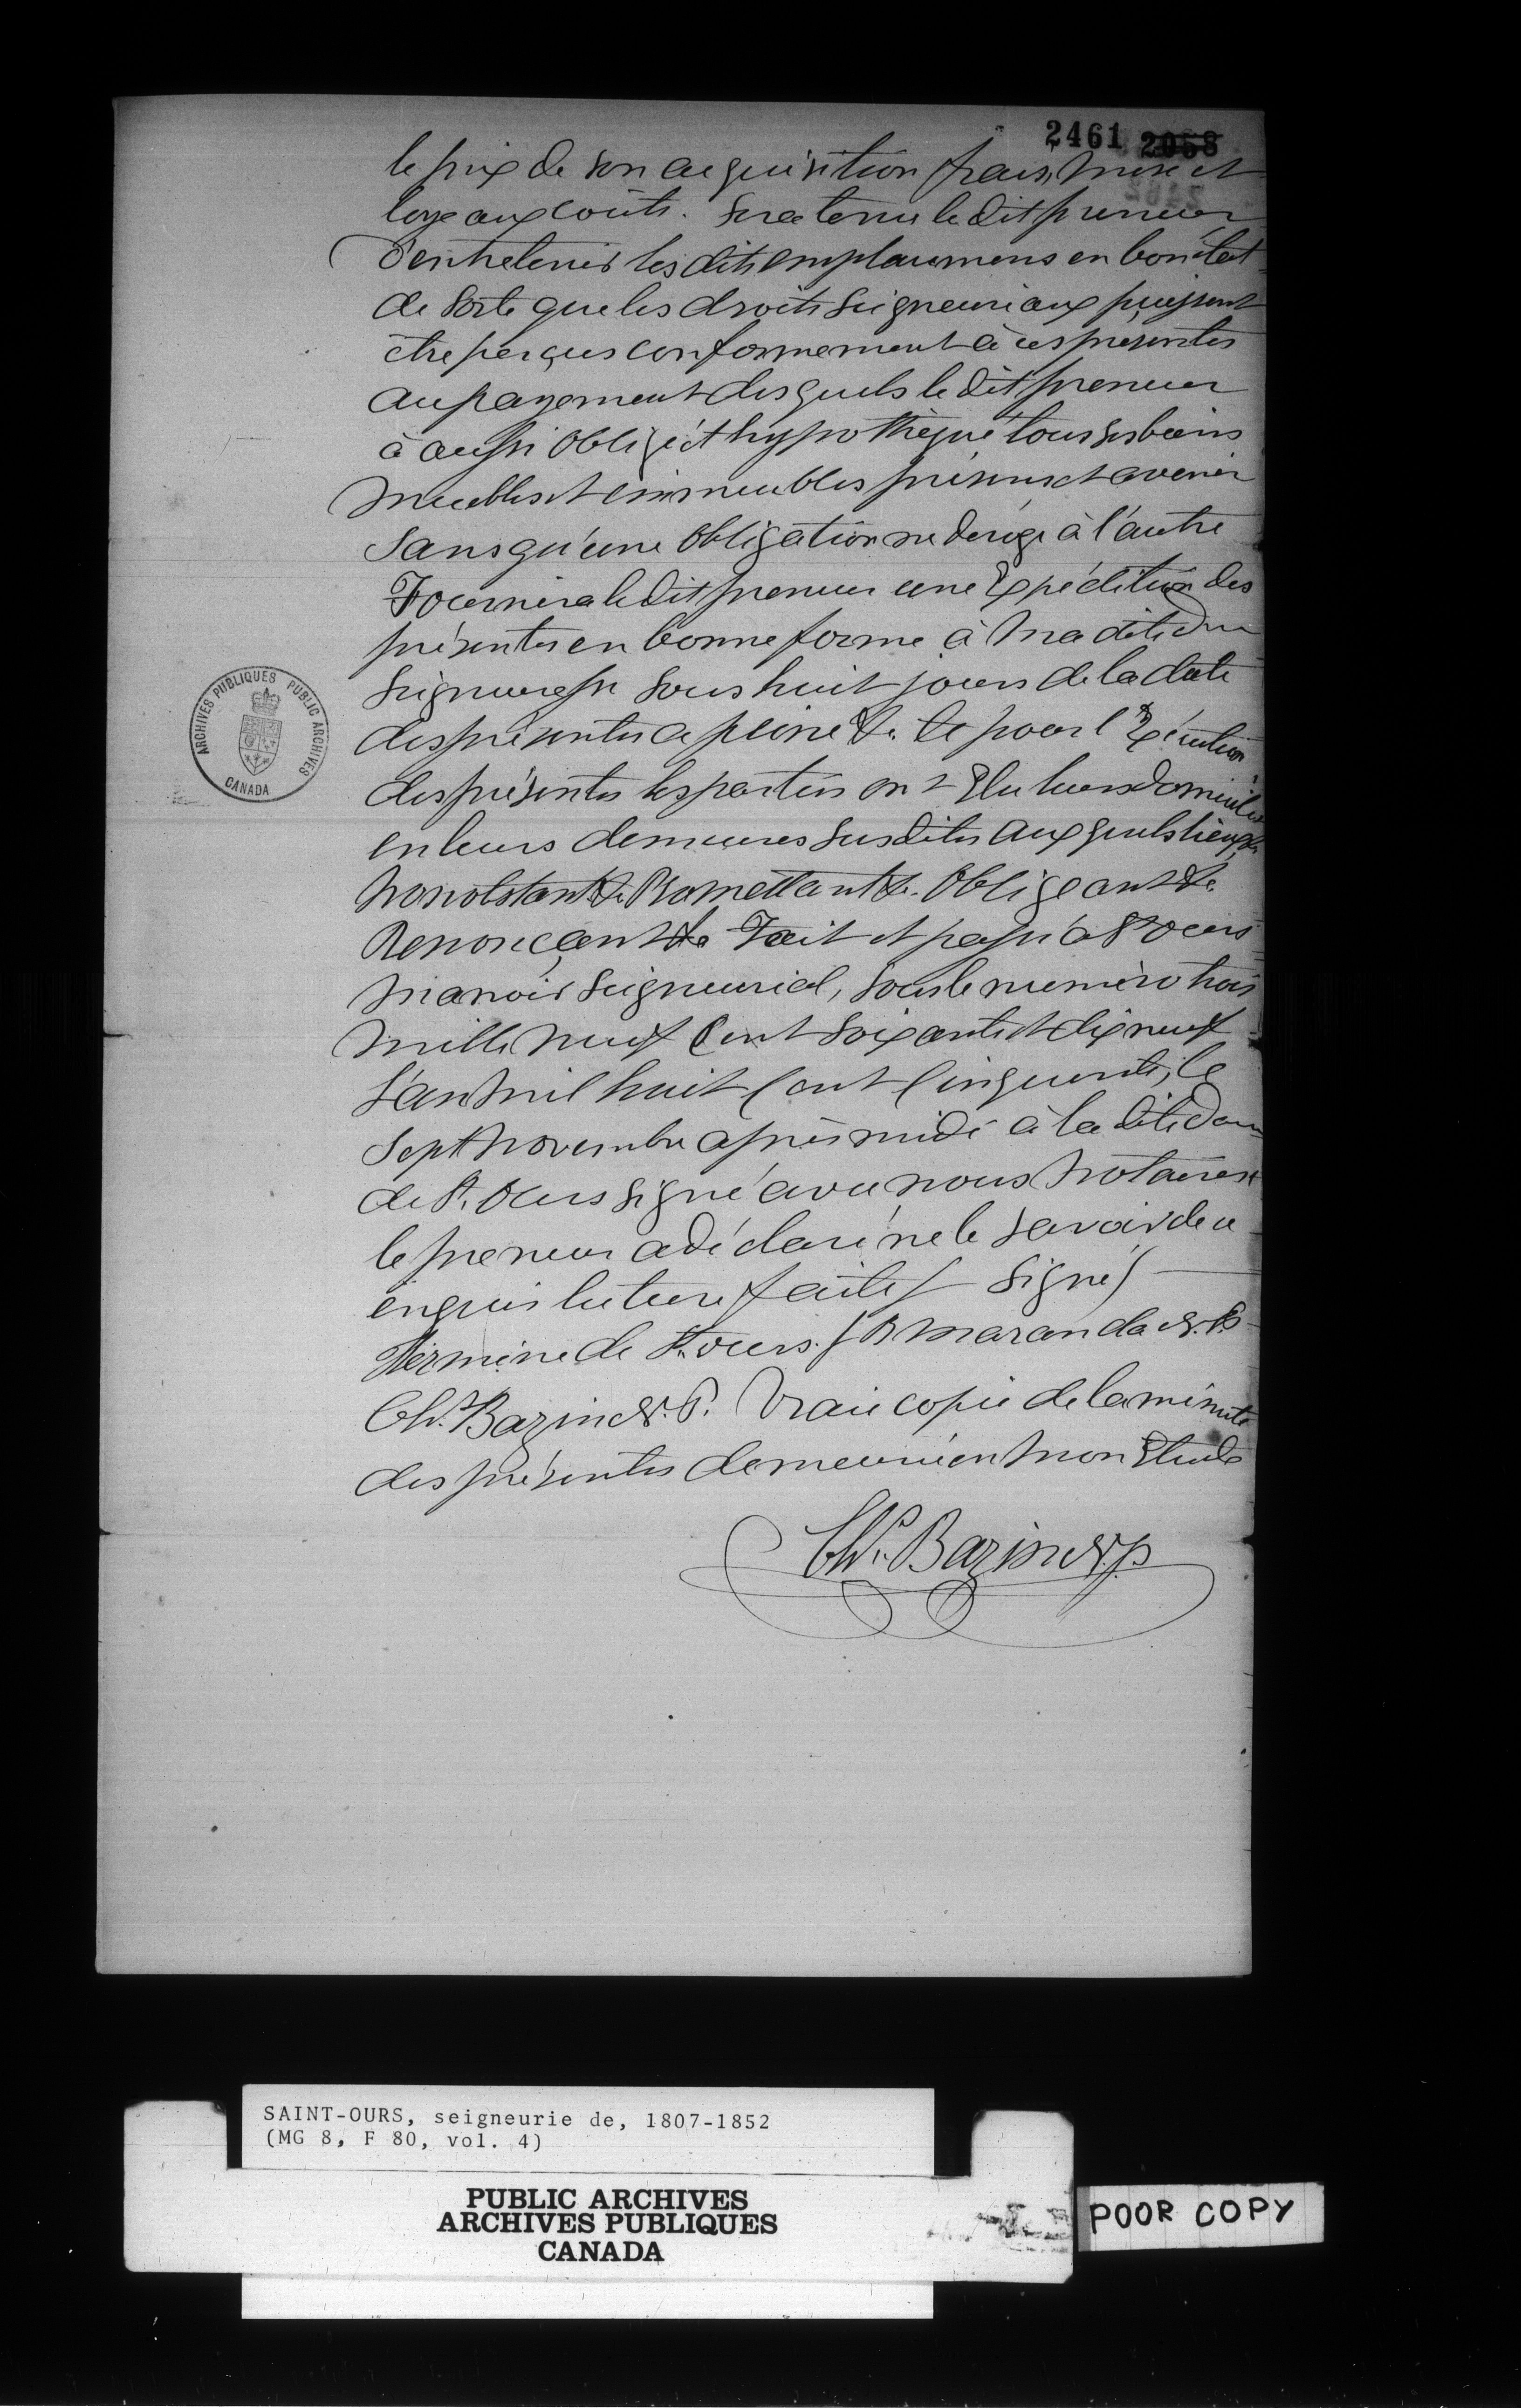 2461 2058
le prix de son acquisition frais, mise et
loyaux coûts. Sera tenu le dit preneur
d'entretenir les dits emplacemens en bon état
de sorte que les droits Seigneuriaux puissent
être perçus conformement à ces présentes
au payement desquels le dit preneur
à aussi obligé et hypothèqué tous ses biens
meubles et immeubles présens et avenir
Sans qu'une obligation ne déroge à l'autre
Fournira le dit preneur une Expédition des
présentes en bonne forme à ma dite Dme
Seigneuresse sous huit jours de la date
des présentes a peine &c. Et pour l'Exécution
des présentes les parties ont Elu leurs domiciles
en leurs demeures susdites aux quels lieux &c
nonobstant &c Promettant &c. Obligeant &c
Renonçant &c Fait et passé à St Ours
manoir Seigneurial, sous le numéro trois
mille neuf Cent soixante et dix neuf
L'an mil huit Cent Cinquante, le
Sept Novembre après midi à la dite Dame
de St. Ours signé avec nous Notaires
le preneur a déclaré ne le savoir de ce
enquis lecture faite / Signé /
Hermine de St. Ours. / B Maranda N.P.
Chs. Bazin N.P. Vraie copie de la minute
des présentes demeurée en mon Etude
Chs. Bazin N.P.
ARCHIVES PUBLIQUES PUBLIC ARCHIVES
CANADA
SAINT-OURS, seigneurie de, 1807-1852
(MG 8, F 80, vol. 4)
PUBLIC ARCHIVES
ARCHIVES PUBLIQUES
CANADA
POOR COPY